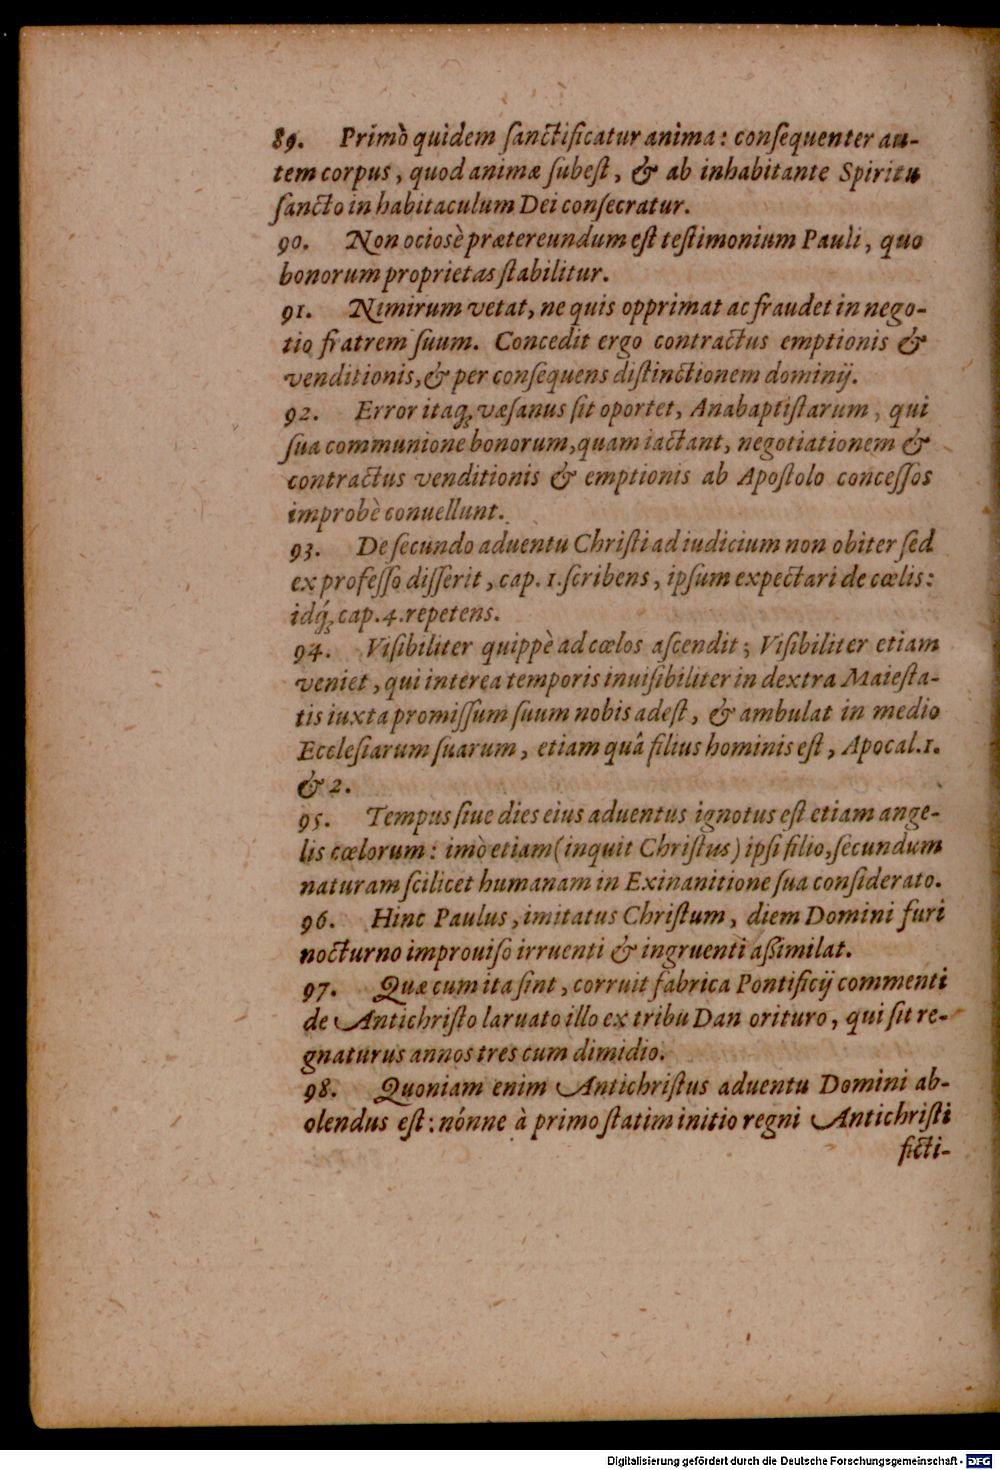 89. Primò quidem ſanctificatur anima: conſequenter au-
tem corpus, quod animæ ſubeſt, & ab inhabitante Spiritu
ſancto in habitaculum Dei conſecratur.
90. Non ociosè prætereundum eſt teſtimonium Pauli, quo
bonorum proprietas ſtabilitur.
91. Nimirum vetat, ne quis opprimat ac fraudet in nego-
tio fratrem ſuum. Concedit ergo contractus emptionis &
venditionis, & per conſequens diſtinctionem dominij.
92. Error itaq́; væſanus ſit oportet, Anabaptiſtarum, qui
ſua communione bonorum, quam iactant, negotiationem &
contractus venditionis & emptionis ab Apoſtolo conceſſos
improbè conuellunt.
93. De ſecundo aduentu Chriſti ad iudicium non obiter ſed
ex profeſſo diſſerit, cap. 1. ſcribens, ipſum expectari de cœlis:
idq́; cap. 4. repetens.
94. Viſibiliter quippè ad cœlos aſcendit; Viſibiliter etiam
veniet, qui interea temporis inuiſibiliter in dextra Maieſta-
tis iuxta promiſſum ſuum nobis adeſt, & ambulat in medio
Eccleſiarum ſuarum, etiam quâ filius hominis eſt, Apocal. 1.
& 2.
95. Tempus ſiue dies eius aduentus ignotus eſt etiam ange-
lis cœlorum: imò etiam (inquit Chriſtus) ipſi filio, ſecundum
naturam ſcilicet humanam in Exinanitione ſua conſiderato.
96. Hinc Paulus, imitatus Chriſtum, diem Domini furi
nocturno improuiſo irruenti & ingruenti aßimilat.
97. Quæ cum ita ſint, corruit fabrica Pontificij commenti
de Antichriſto laruato illo ex tribu Dan orituro, qui ſit re-
gnaturus annos tres cum dimidio.
98. Quoniam enim Antichriſtus aduentu Domini ab-
olendus eſt: nónne à primo ſtatim initio regni Antichriſti
ficti-
Digitalisierung gefördert durch die Deutsche Forschungsgemeinschaft - DFG